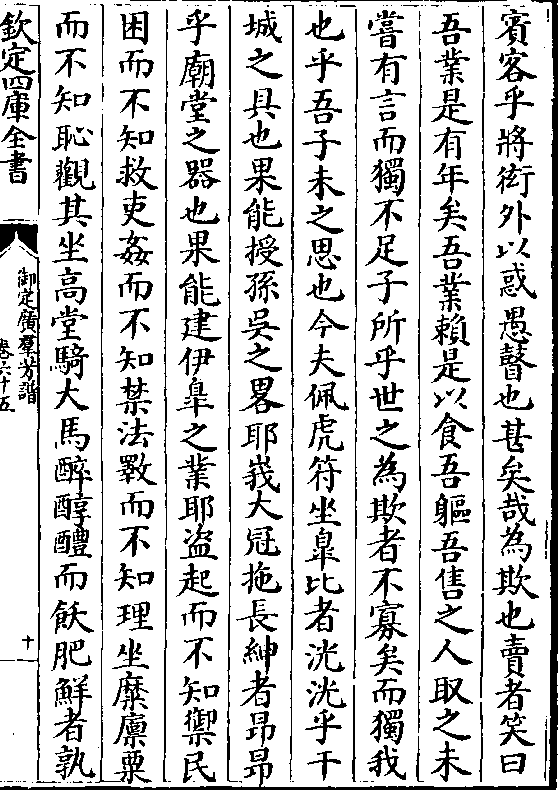 賓客乎將衒外以惑愚瞽也甚矣哉為欺也賣者笑曰
吾業是有年矣吾業賴是以食吾軀吾售之人取之未
嘗有言而獨不足子所乎世之為欺者不寡矣而獨我
也乎吾子未之思也今夫佩虎符坐臯比者洸洸乎干
城之具也果能授孫吳之畧耶峩大冠拖長紳者昂昂
乎廟堂之器也果能建伊臯之業耶盗起而不知禦民
困而不知救吏姦而不知禁法斁而不知理坐糜廪粟
而不知恥觀其坐高堂騎大馬醉醇醴而飫肥鮮者孰
欽定四庫全書
御定廣羣芳譜
卷六十五
十